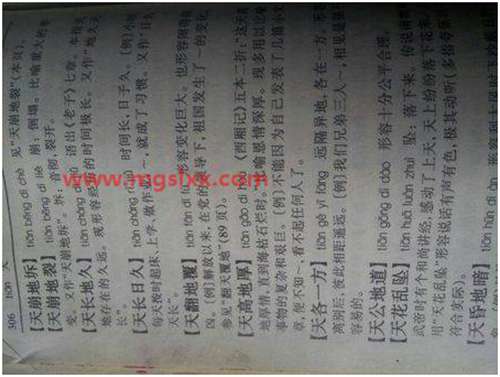 306 tiān 天
【天崩地坼】 tiān bēng dì chè 见“天崩地裂”(本页)。
【天崩地裂】 tiān bēng dì liè 崩:倒塌。比喻重大的事
变。又作“天崩地坼”。坼,音彻,裂开。
【天长地久】 tiān cháng 语出《老子》七章。本指天
地存在的久远。现形容经的时间极长。又作“地久天
长”。
【天长日久】 tiān cháng 时间长,日子久。[例]
每天按时起床、上学、做作～,就成了习惯。又作“日久
天长”。
【天翻地覆】 tiān fān dì 形容变化巨大。也形容闹得
凶。[例]解放以来,在党的领导下,祖国发生了～的变化。
参见“翻天覆地”(89页)。
【天高地厚】 tiān gāo dì hòu 《西厢记》五本二折:“这天高
地厚情,直到海枯石烂时。”比喻恩情深厚。现多用以比喻
事物的复杂和艰巨。[例]不能因为自己发表了几篇小文
章,便不知～,看不起任何人了。
【天各一方】 tiān gè yī fāng 远隔异地,各在一方。形容
离别后,彼此相距遥远。[例]我们兄弟三人～,相见是很
容易的。
【天公地道】 tiān gōng dì dào 形容十分公平合理。
【天花乱坠】 tiān huā luàn zhuì 坠:落下来。传说南朝
武帝时有个和尚讲经,感动了上天,天上纷纷落下花来。
用“天花乱坠”形容说话有声有色,极其动听(多指夸张
符合实际)。
【天昏地暗】 tiān hūn dì àn
www.mgslxx.com